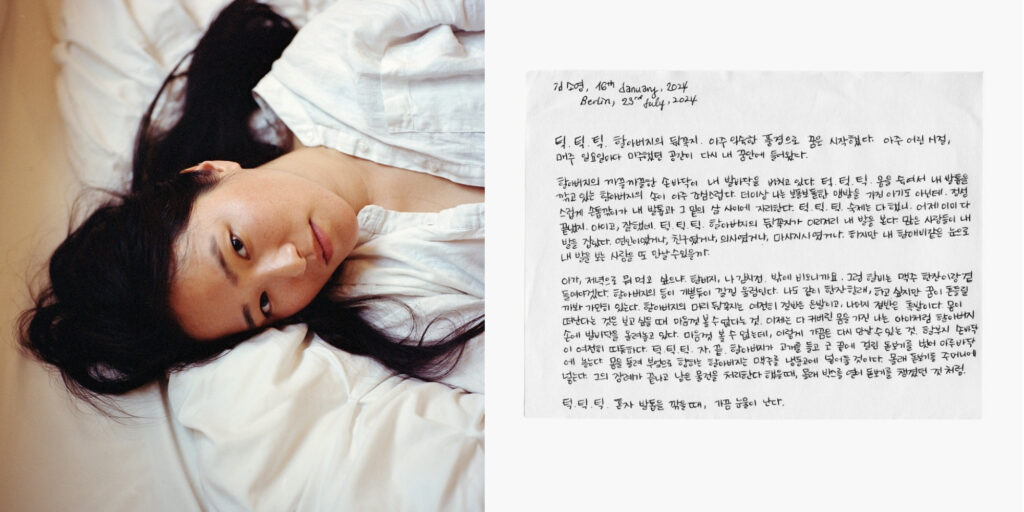 김소영, 16th January, 2024
Berlin, 23rd July, 2024
턱. 턱. 턱. 할아버지의 뒤꼭지. 아주 익숙한 풍경으로 꿈은 시작했다. 아주 어린 시절,
매주 일요일마다 마주했던 공간이 다시 내 꿈안에 들어왔다.
할아버지의 까끌까끌한 손바닥이 내 발바닥을 버치고 있다. 턱. 턱. 턱. 몸을 숙여서 내 발톱을
깎고 있는 할아버지의 손이 아주 조심스럽다. 더이상 나는 보들보들한 맨발을 가진 아기도 아닌데. 정성
스럽게 손톱깎이가 내 발톱과 그 밑의 살 사이에 자리한다. 턱. 턱. 턱. 숙제는 다 했니. 어제 이미 다
끝냈지. 아이고, 잘했네. 턱. 턱. 턱. 할아버지의 뒤꼭지가 이리저리 내 발을 본다. 많은 사람들이 내
발을 잡았다. 연인이었거나, 친구였거나, 의사였거나, 마사지사였거나. 하지만 내 할애비같은 눈으로
내 발을 보는 사람을 또 만날 수 있을까.
아가, 저녁으로 뭐 먹고 싶으냐. 할버지, 나 감자전. 밖에 비오니까요. 그럼 할비는 맥주 한잔이랑 곁
들여야겠다. 할아버지의 등이 개별등이 갈길 울렁인다. 나도 같이 한잔 할래, 하고 싶지만 꿈이 흔들릴
까봐 가만히 있는다. 할아버지의 머리 뒤꼭지는 여전히 절반은 은발이고, 나머지 절반은 흑발이다. 몸이
떠난다는 것은 보고 싶을 때 마음껏 볼 수 없다는 것. 이제는 다 커버린 몸을 가진 나는 아이처럼 할아버지
손에 발바닥을 올려놓고 있다. 마음껏 볼 수 없는데, 이렇게 가끔은 다시 만날 수 있는 것. 할부지 손바닥
이 여전히 따듯하다. 턱. 턱. 턱. 자, 끝. 할아버지가 고개를 들고 코 끝에 걸린 돋보기를 벗어 마루바닥
에 놓는다. 몸을 돌려 부엌으로 향하는 할아버지는 맥주를 냉동고에 넣어둘 것이다. 몰래 돋보기를 주머니에
넣는다. 그의 장례가 끝나고 남은 물건을 처리한다 했을때, 몰래 박스를 열어 돋보기를 챙겼던 것 처럼.
턱. 턱. 턱. 혼자 발톱을 깎을 때, 가끔 눈물이 난다.